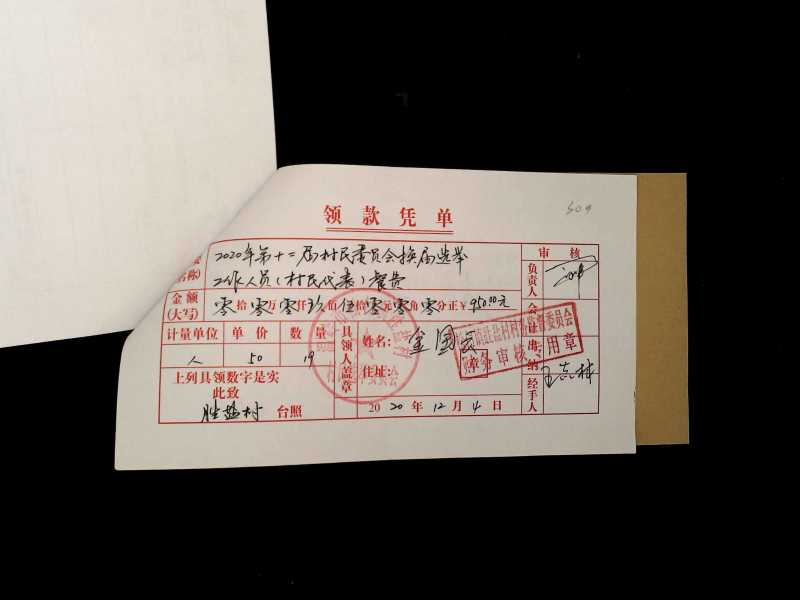 509
领款凭单
2020年第十二届村民委员会换届选举
名称) 工作人员(村民代表)餐费
审核
负责人
金额(大写) 零拾零万零仟玖佰伍拾零元零角零分正¥950.00元
会计
出纳
计量单位 单价 数量
人 50 19
具领人盖章
姓名:
住址:
村务监督委员会
财务审核专用章
上列具领数字是实
此致
胜盐村 台照
2020年12月4日
经手人